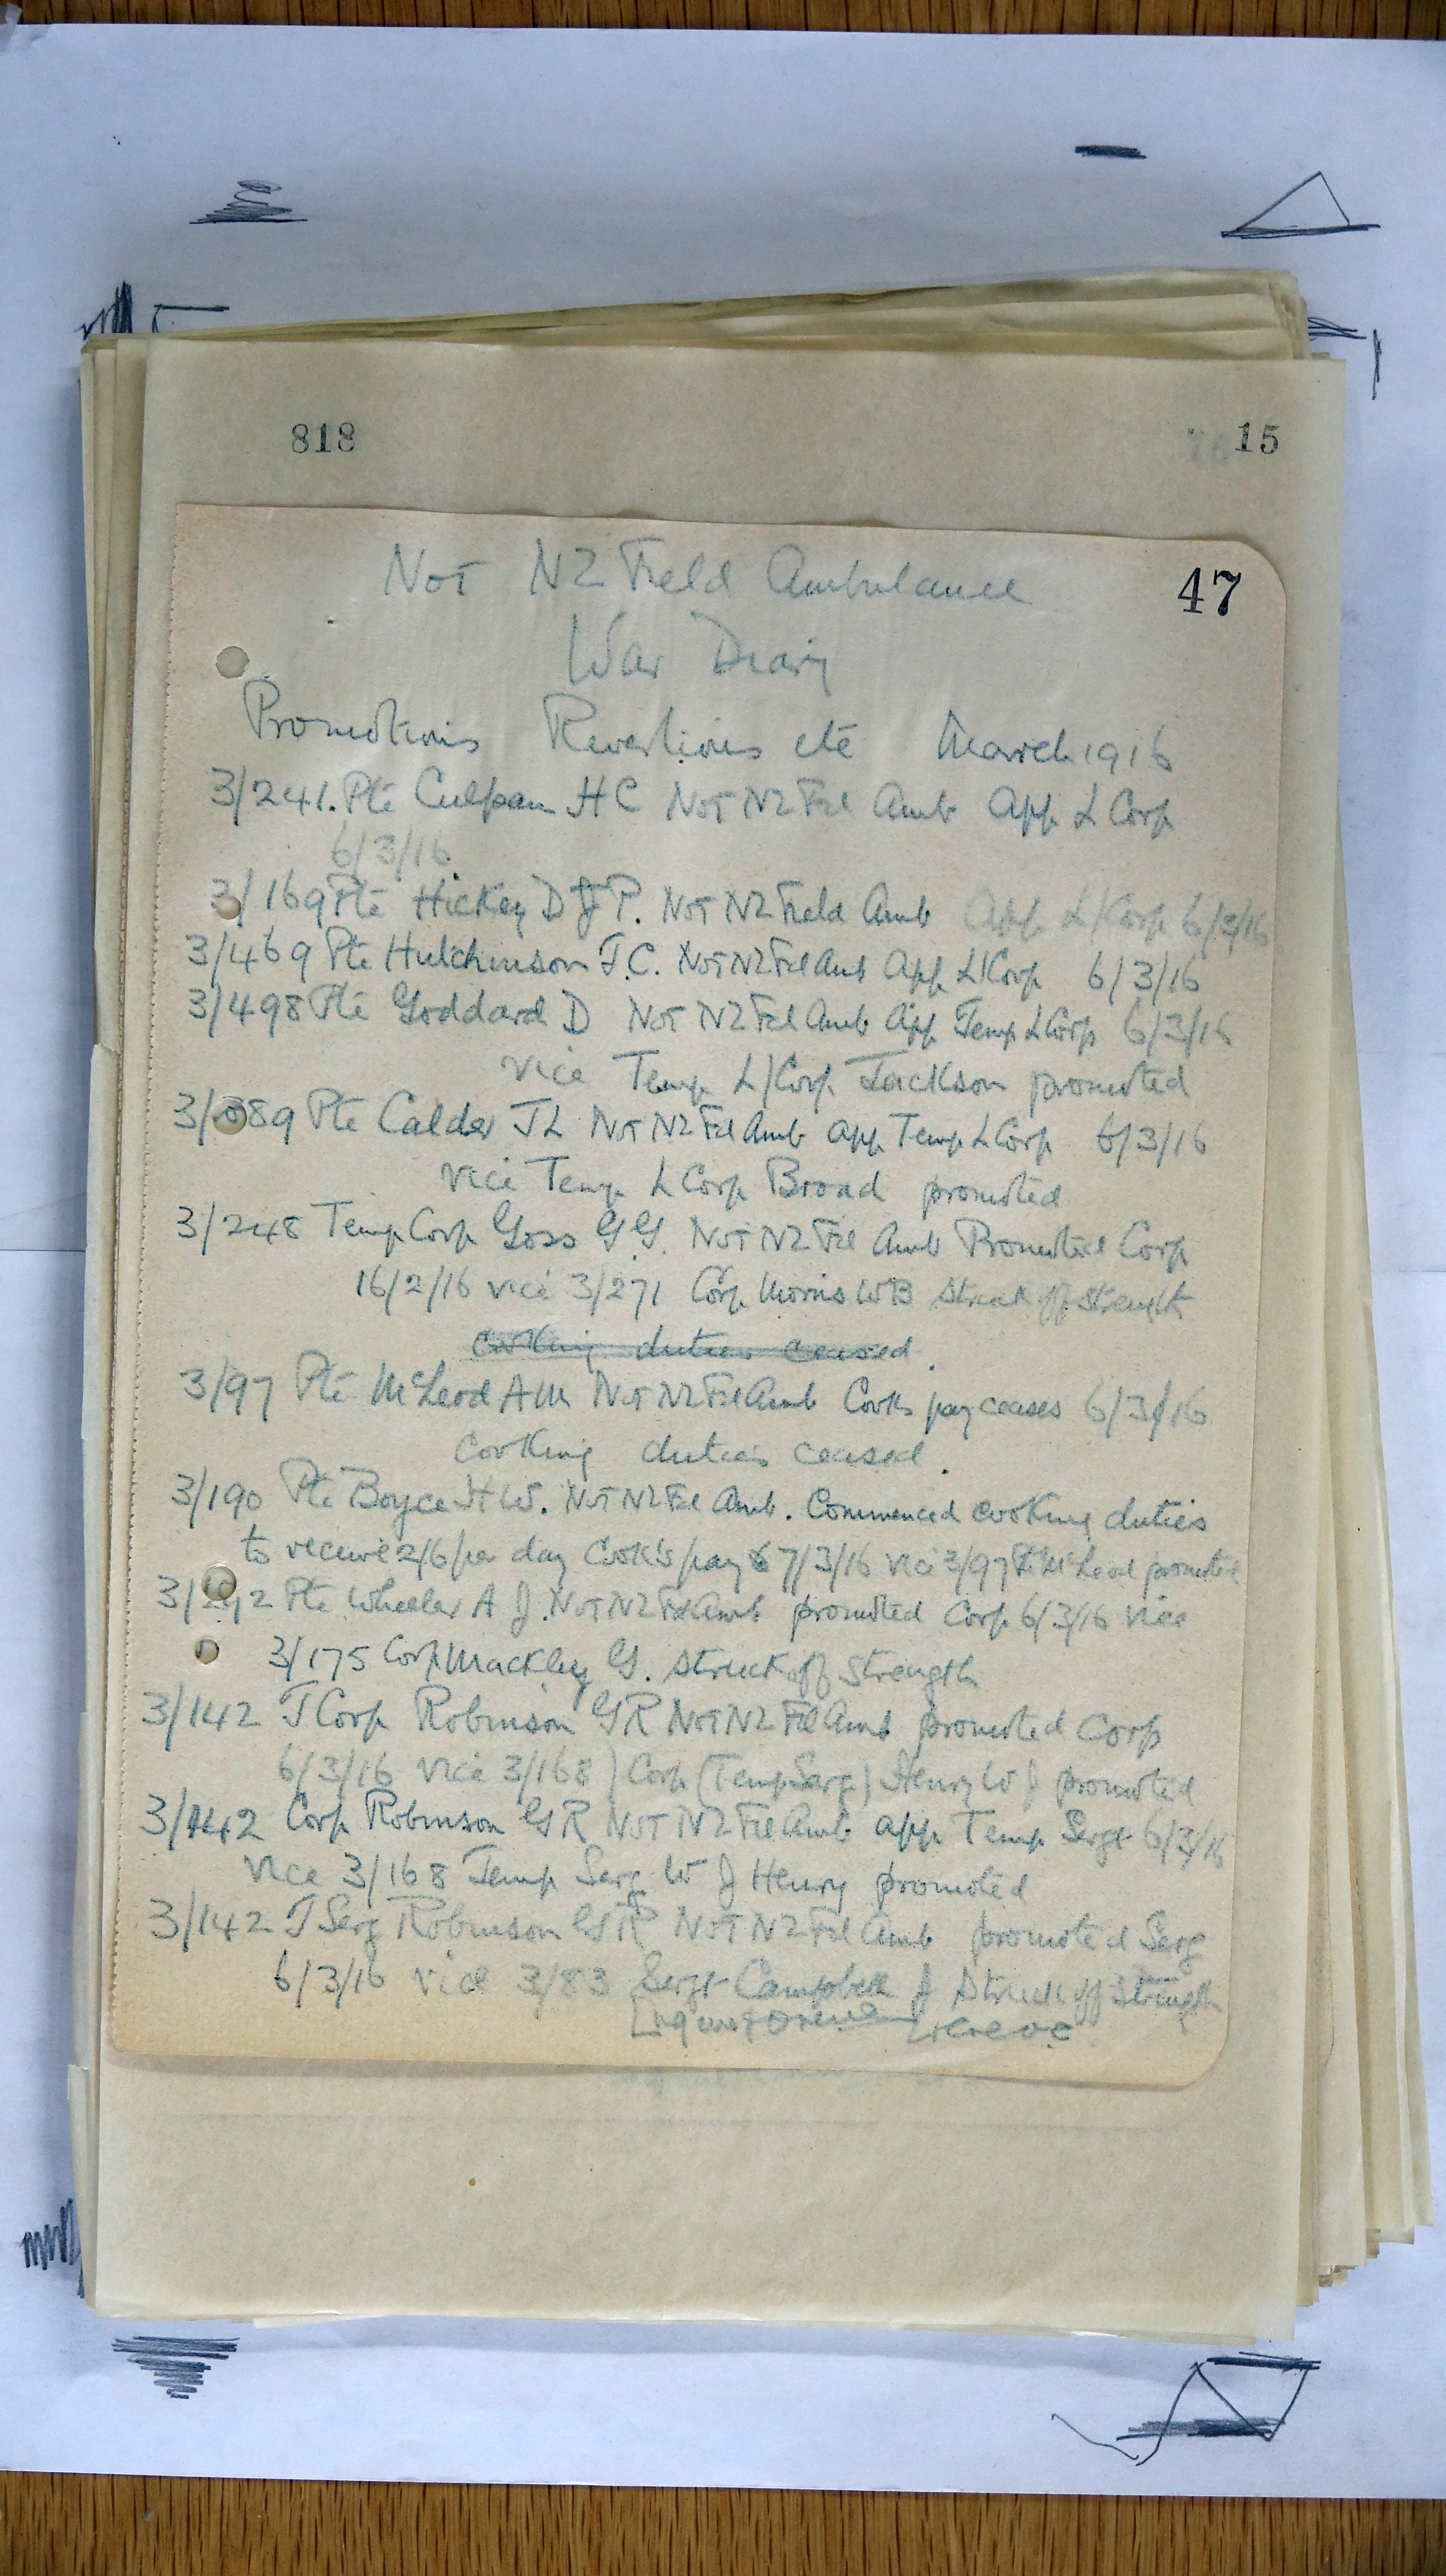 818
15
47
No1 NZ Field Ambulance
War Diary
Promotions Reversions etc March 1916
3/241. Pte Culpan H C No1 NZ Fd Amb App L Corp
6/3/16
3/169 Pte Hickey D J P. No1 NZ Field Amb App L/Corp 6/3/16
3/469 Pte Hutchinson J.C. No1 NZ Fd Amb App L/Corp 6/3/16
3/498 Pte Goddard D No1 NZ Fd Amb App Temp L Corp 6/3/16
vice Temp L/Corp Jackson promoted
89 Pte Calder J L No1 NZ Fd Amb app Temp L Corp 6/3/16
vice Temp L Corp Broad promoted
3/248 Temp Corp Goss G G. No1 NZ Fd Amb Promoted Corp
16/2/16 vice 3/271 Corp Morris W B struck off strength
cooking duties ceased.
3/97 Pte McLeod A M No1 NZ Fd Amb Cooks pay ceases 6/3/16
Cooking duties ceased.
3/190 Pte Boyce H W. No1 NZ Fd Amb. Commenced cooking duties
to receive 2/6 per day Cook's pay 7/3/16 vice 3/97 Pte McLeod promoted
Pte Wheeler A J. No1 NZ Fd Amb promoted Corp 6/3/16 vice
3/175 Corp Mackley G. struck off strength
3/142 T Corp Robinson G R No1 NZ Fd Amb promoted Corp
6/3/16 vice 3/168) Corp (Temp Serg) Henry W J promoted
3/142 Corp Robinson G R No1 NZ Fd Amb app Temp Sergt 6/3/16
vice 3/168 Temp Serg W J Henry promoted
3/142 T Serg Robinson G R No1 NZ Fd Amb promoted Serg
6/3/16 vice 3/83 Sergt Campbell J struck off strength